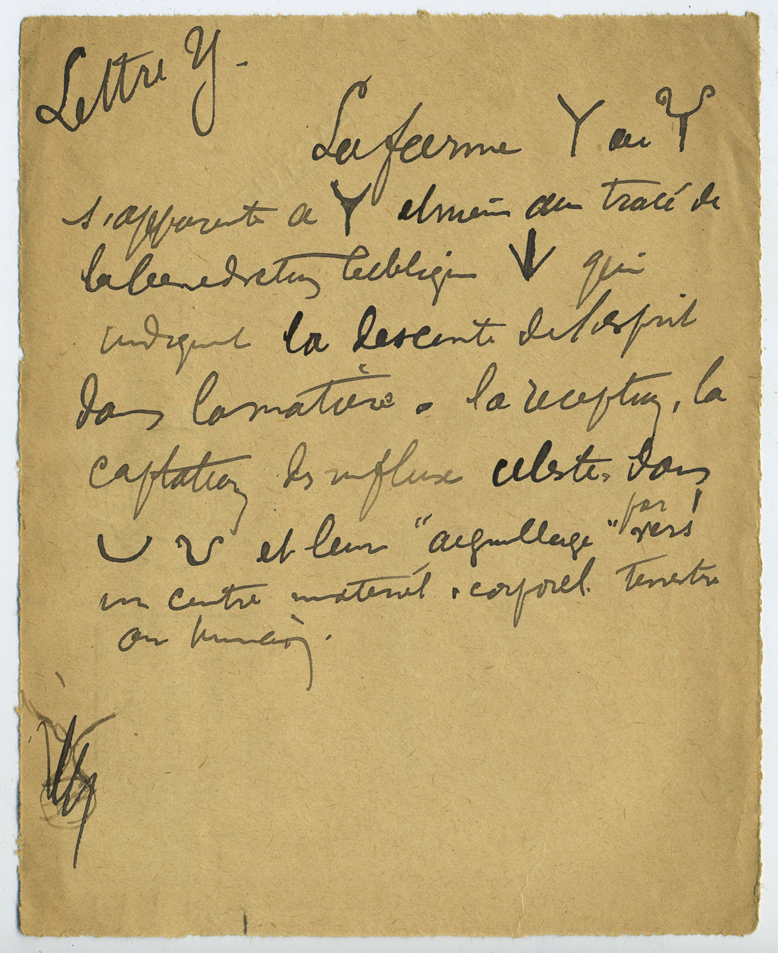 Lettre Y.
La forme Y ou Y
s'apparente à Y et même au tracé de
la benediction biblique ↓ qui
indique la descente de l'esprit
dans la matière. la reception, la
captation des influx celestes dans
et leur "aiguillage" par vers
un centre materiel, corporel. terrestre
ou humain.